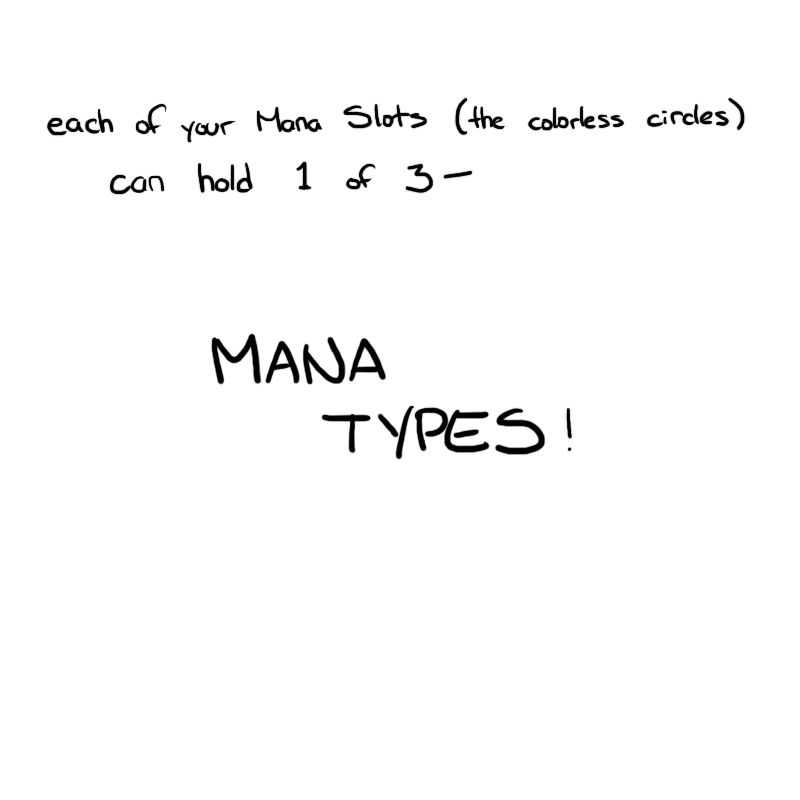 each of your Mana Slots (the colorless circles)
can hold 1 of 3-
MANA
TYPES!